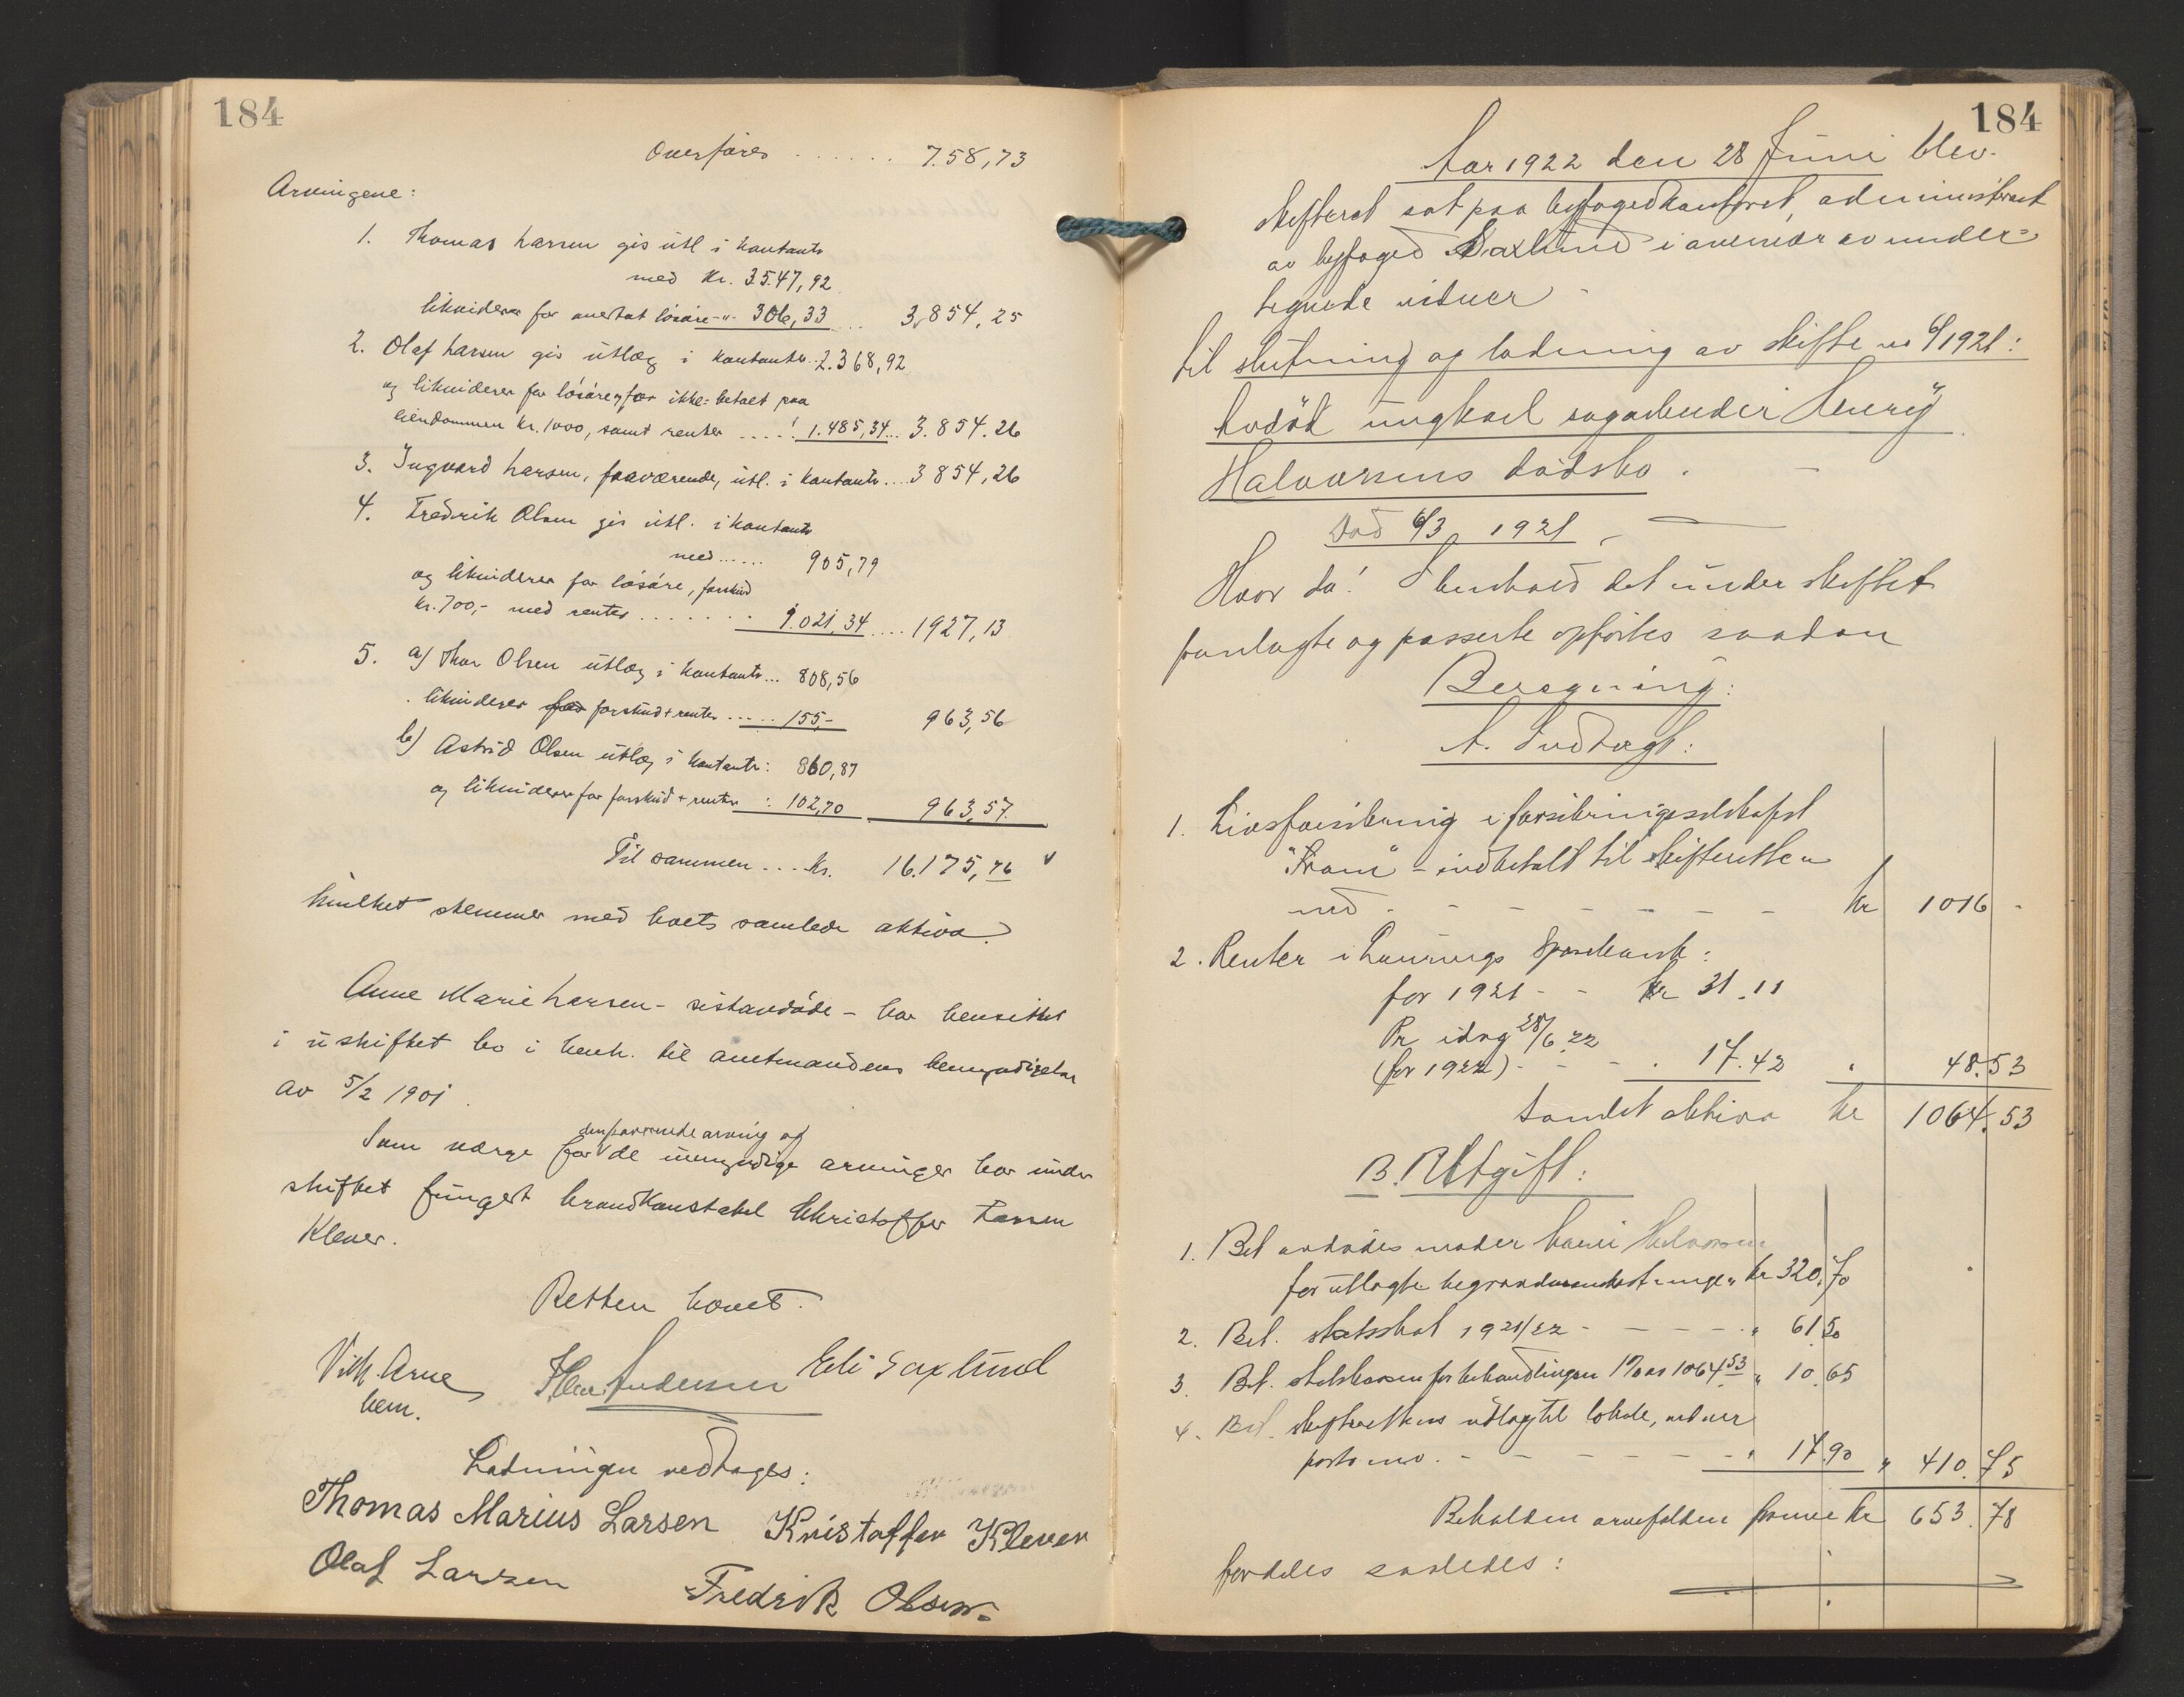 184
Overføres ...... 758,73
Arvingene:
1. Thomas Larsen gis utl i kontanter
med Kr. 3547,92
likviderer for overtat løsøre -"- 306,33 ... 3.854,25
2. Olaf Larsen gis utlæg i kontanter.. 2.368,92
og likviderer for løsøre, for ikke-betalt paa
eiendommen kr. 1000, samt renter ..... 1.485,34... 3.854.26
3. Ingvard Larsen, fraværende, utl. i kontanter ... 3854,26
4. Fredrik Olsen gis utl. i kontanter
med ...... 905,79
og likviderer for løsøre, forskud
kr. 700,- med renter ....... 1.021,34 .... 1927,13
5. a) Thor Olsen utlæg i kontanter... 808,56
likviderer for forskud + renter ..... 155,- 963,56
b) Astrid Olsen utlæg i kontanter: 860,87
og likviderer for forskud + renter : 102,70 963,57.
Til sammen ... kr. 16.175,76
hvilket stemmer med boets samlede aktiva.
Anne Marie Larsen - sistavdøde - har hensittet
i uskiftet bo i henh. til amtmandens bemyndigelse
av 5/2 1901.
den fraværende arving og
Som værge for de umyndige arvinger har under
skiftet fungert brandkonstabel Christoffer Larsen
Klever.
Retten hævet.
Vilh. Arne Hen Andersen Edi Saxlund
bem.
Ladningen vedtages:
Thomas Marius Larsen Kristoffer Klever
Olaf Larsen Fredrik Olsen
184
Aar 1922 den 28 Juni blev
skifteret sat paa byfogedkontoret, administrert
av byfoged Saxlund i overvær av under=
tegnede vidner
til slutning og ladning av skifte no 6/1921:
avdød ungkarl sagarbeider Henry
Halvorsens dødsbo.
Død 6/3 1921
Hvor da! I henhold det under skiftet
fremlagte og passerte opførtes saadan
Beregning:
A. Indtægt:
1. Livsforsikring i forsikringsselskapet
"Fram" - indbetalt til skifteretten
med - - - - - kr 1016 -
2. Renter i Sparebank:
for 1921 - - kr 31.11
Pr idag 28/6 22
(for 1922) - - - . 17.42 " 48.53
Samlet aktiva kr 1064.53
B. Utgift:
1. Bet avdødes moder Halvorsen
for utlagte begravelsesomkostninger kr 320.70
2. Bet. statsskat 1921/22 - - - - " 61 50
3. Bet. statskassen for behandlingen 1% av 1064 53 " 10.65
4. Bet. skifterettens utlæg til lokale, vidner
porto mv. - - - - - " 17.90 " 410.75
Beholden arvefalden formue kr 653.78
fordeles saaledes: